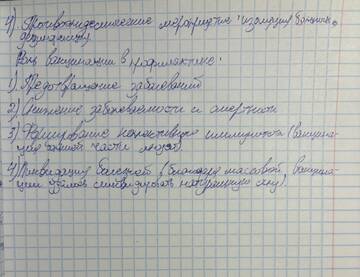 4) Противоэпидемические мероприятия: изоляция больных,
дезинфекция.
Роль вакцинации в профилактике:
1) Предотвращение заболеваний
2) Снижение заболеваемости и смертност
3) Формирование коллективного иммунитета (вакцина-
ция большей части людей)
4) Ликвидация болезней (благодаря массовой вакцина-
ции удалось ликвидировать натуральную оспу)